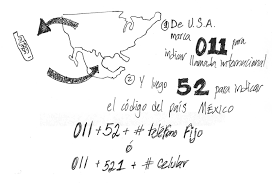 ① De U.S.A.
marca 011 para
indicar llamada internacional
② Y luego 52 para indicar
el código del país MÉXICO
011 + 52 + # teléfono Fijo
ó
011 + 521 + # Celular